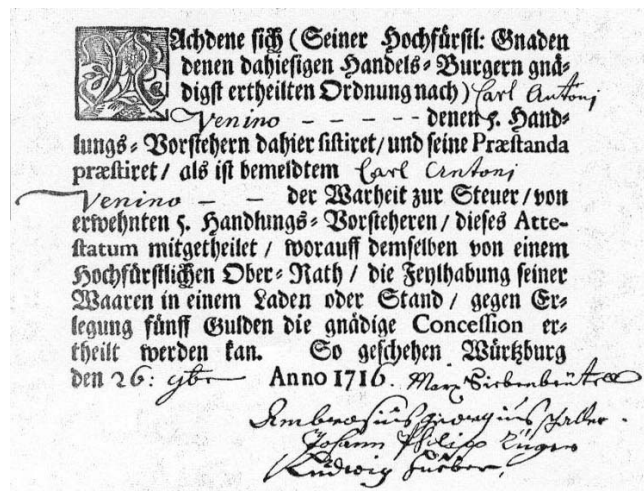 NAchdene sich (Seiner Hochfürstl: Gnaden
denen dahiesigen Handels-Burgern gnä-
digst ertheilten Ordnung nach) Carl Antonj
Venino - - - - - denen 5. Hand-
lungs-Vorstehern dahier sistiret / und seine Præstanda
præstiret / als ist bemeldtem Carl Antonj
Venino - - der Warheit zur Steuer / von
erwehnten 5. Handlungs-Vorsteheren / dieses Atte-
statum mitgetheilet / worauff demselben von einem
Hochfürstlichen Ober-Rath / die Feylhabung seiner
Waaren in einem Laden oder Stand / gegen Er-
legung fünff Gulden die gnädige Concession er-
theilt werden kan. So geschehen Würtzburg
den 26: 9br Anno 1716. Marx
Ambrosius Georgius
Johann Philipp
Ludwig